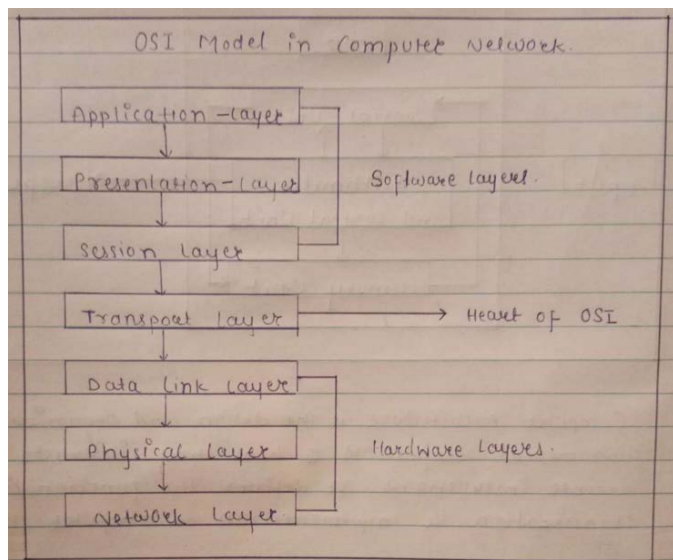 OSI Model in Computer Network.
Application-layer
Presentation-layer
Software layers.
Session layer
Transport layer
Heart of OSI
Data link layer
Physical layer
Hardware layers.
Network layer